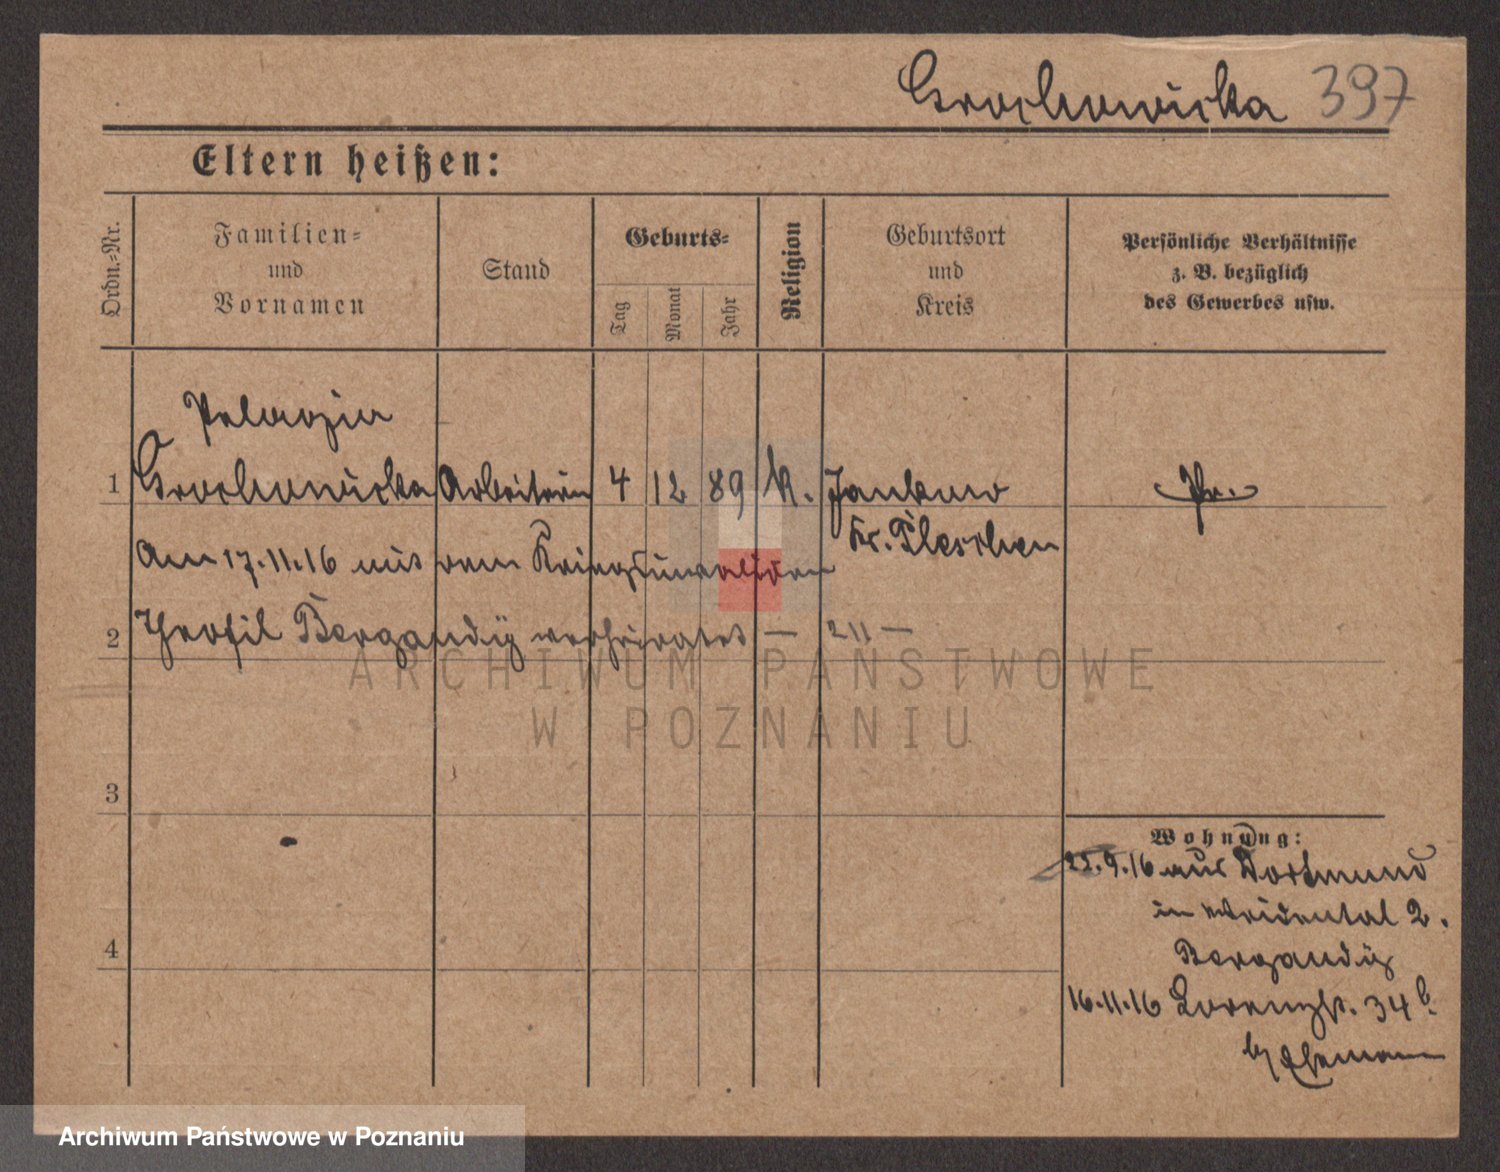 Grochowicka 397
Eltern heißen:
Ordn.-Nr.
Familien-
und
Vornamen
Stand
Geburts-
Tag
Monat
Jahr
Religion
Geburtsort
und
Kreis
Persönliche Verhältnisse
z. B. bezüglich
des Gewerbes usw.
Pelagia
1 Grochowicka Arbeiterin 4 12 89 k. Jankow Pr.
Kr. Pleschen
am 17.11.16 mit dem Kriegsinvaliden
2 Theofil Bergandÿ verheiratet — 211 —
3
4
Wohnung:
22.9.16 aus Dortmund
in Weidental 2.
Bergandÿ
16.11.16 Lorenzstr. 34 b
b/ Ehemann
ARCHIWUM PAŃSTWOWE
W POZNANIU
Archiwum Państwowe w Poznaniu